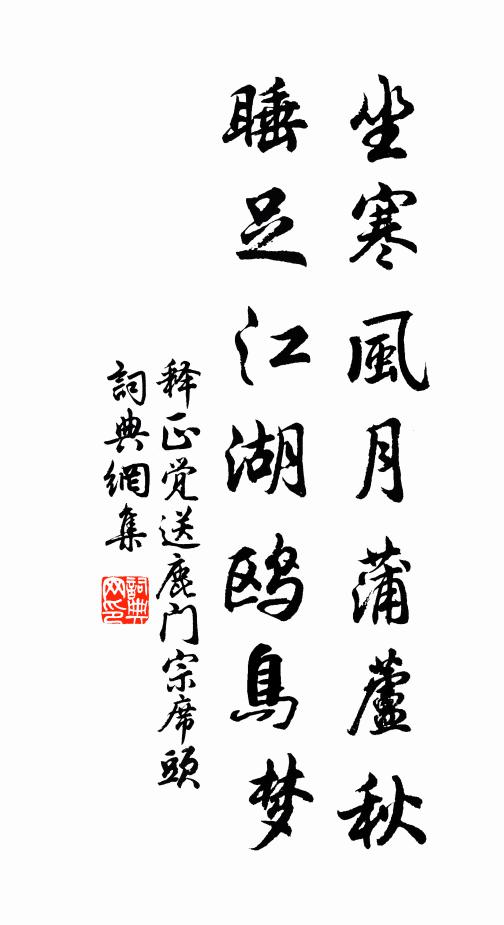 坐寒風月蒲蘆秋
睡足江湖鸥鳥梦
释正觉送鹿门宗席頭
詞典網集
詞典